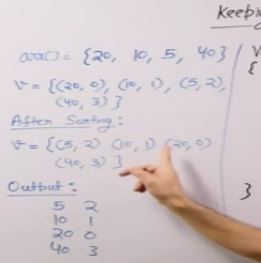 Keepin
arr[] = {20, 10, 5, 40}
V = {(20, 0), (10, 1), (5, 2),
(40, 3)}
After Sorting:
V = {(5, 2) (10, 1) (20, 0)
(40, 3)}
Output:
5 2
10 1
20 0
40 3
{
}